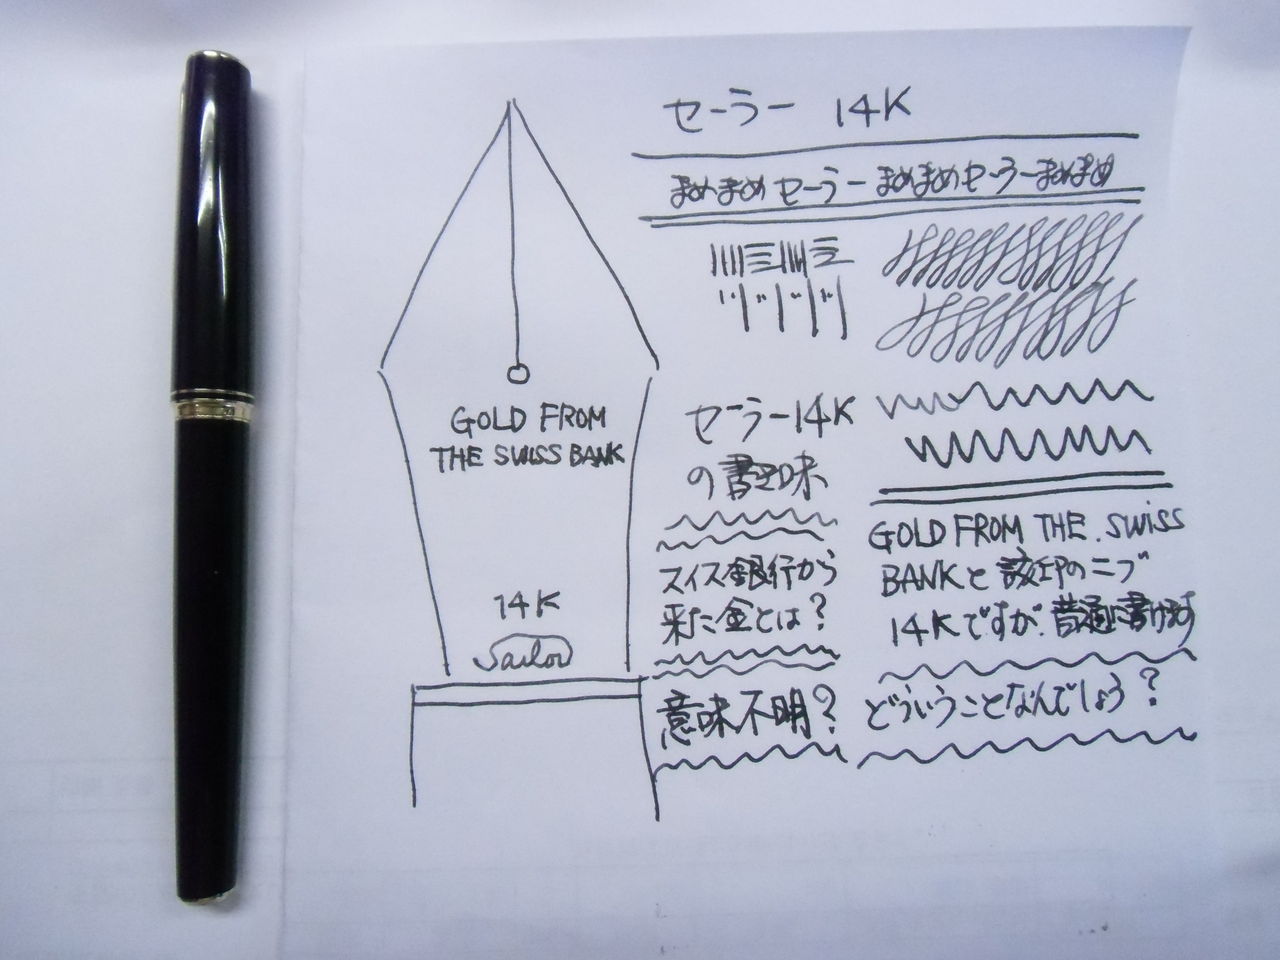 セーラー 14K
まめまめセーラーまめまめセーラーまめまめ
GOLD FROM
THE SWISS BANK
14K
Sailor
セーラー14K
の書き味
スイス銀行から
来た金とは?
意味不明?
GOLD FROM THE SWISS
BANKと刻印のニブ
14Kですが、普通に書けます
どういうことなんでしょう?